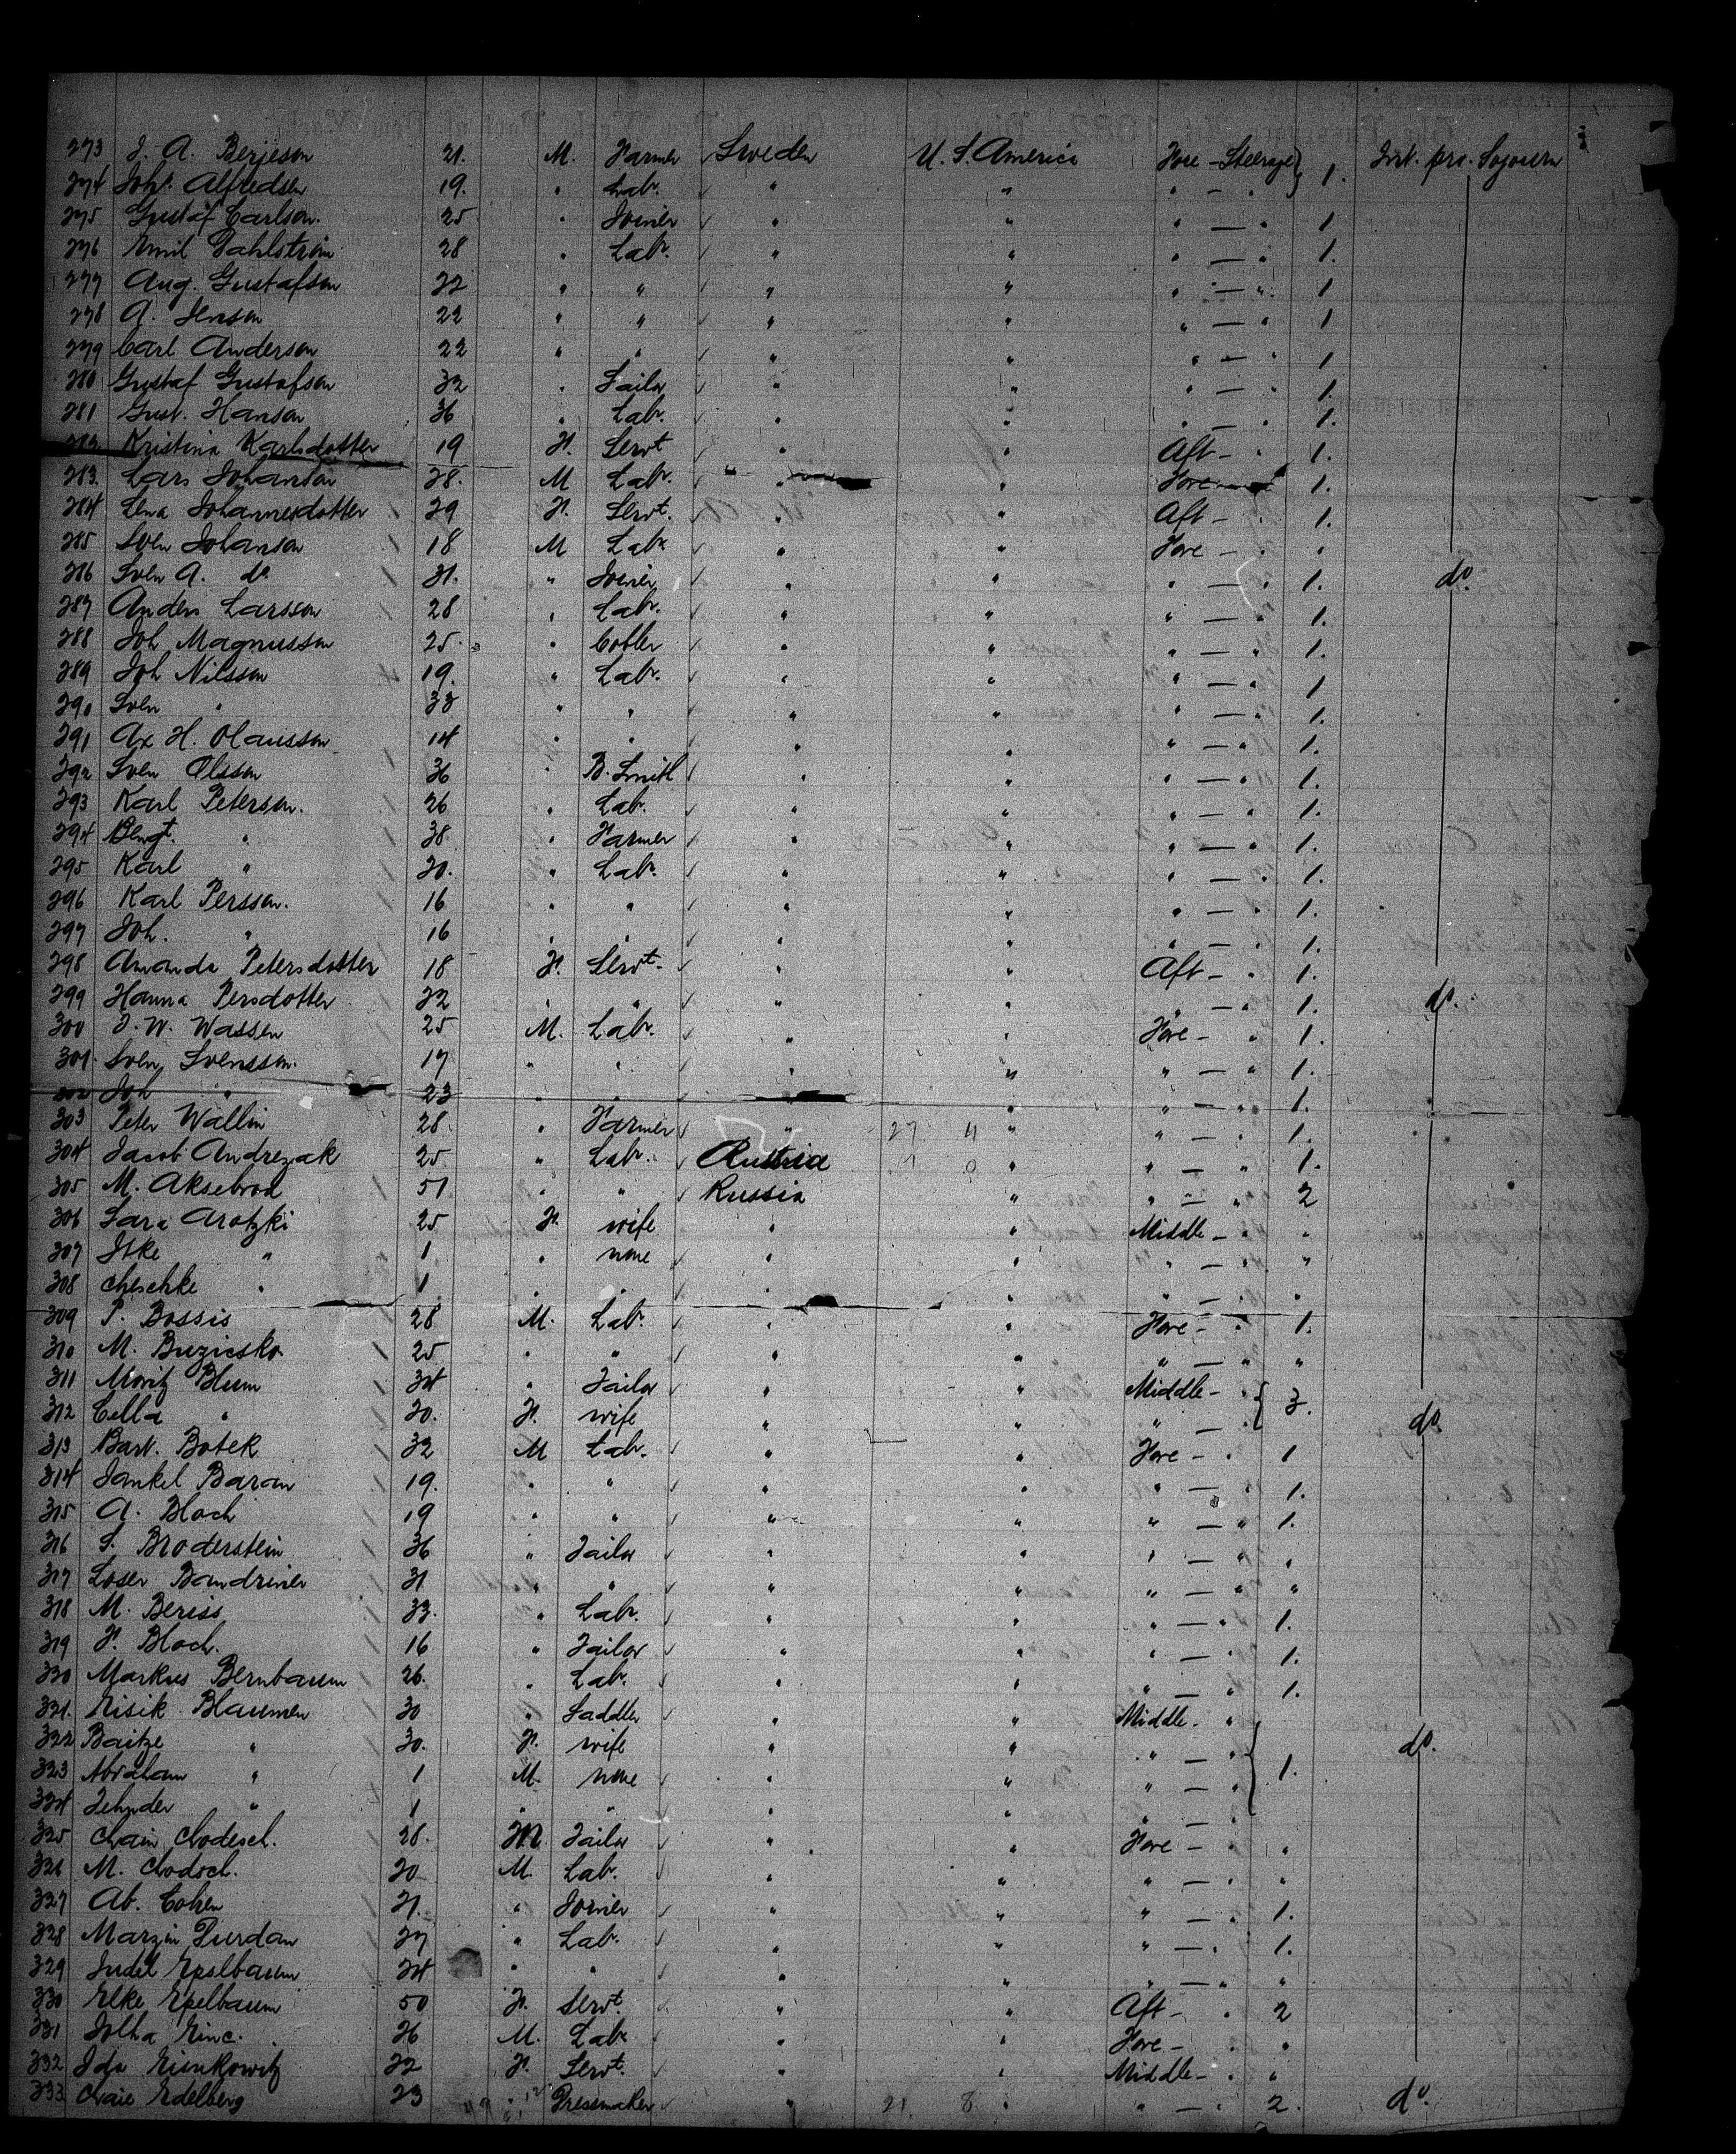 273 J. A. Berjeson 21. M. Farmer Sweden U. S. America Fore - Steerage } 1. Int. pro. Sojourn
274 Joh. Alfredsen 19. " Lab. " " " - "
275 Gustaf Carlson. 25 " Joiner " " " - " 1
276 Emil Dahlström 28 " Lab. " " " - " 1.
277 Aug. Gustafson 22 " " " " " - " 1
278 A. Jenson 22 " " " " " - " 1
279 Carl Anderson 22 " " " " " - " 1
280 Gustaf Gustafson 32 " Tailor " " " - " 1.
281 Gust. Hanson 36 " Lab. " " " - " 1.
282 Kristina Karlsdotter 19 F. Servt " " Aft - " 1.
283. Lars Johanson 28. M Lab. " " Fore - " 1.
284 Lena Johannesdotter 29 F. Servt. " " Aft - " 1.
285 Sven Johanson 18 M Lab. " " Fore - " "
286 Sven A. do 31. " Joiner " " " - " 1. do.
287 Anders Larsson 28 " Lab. " " " - " 1.
288 Joh Magnusson 25. " Cobler " " " - " 1.
289 Joh Nilsson 19. " Lab. " " " - " 1
290 Sven " 33 " " " " " - " 1.
291 Ax H. Olausson 14 " " " " " - " 1.
292 Sven Olsson 36 " B. Smith " " " - " 1.
293 Karl Peterson. 26 " Lab. " " " - " 1.
294 Bengt. " 38 " Farmer " " " - " 1.
295 Karl " 20. " Lab. " " " - " 1.
296 Karl Persson. 16 " " " " " - " 1.
297 Joh. " 16 " " " " " - " 1.
298 Amanda Petersdotter 18 F. Servt. " " Aft - " 1.
299 Hanna Persdotter 22 " " " " " - " 1. do.
300 J. W. Wassen 25 M. Lab. " " Fore - " 1.
301. Sven Svensson. 17 " " " " " - " 1.
302 Joh " 23 " " " " " - " 1.
303 Peter Wallin 28. " Farmer " 27 4 " " - " 1.
304 Jacob Andrezak 25 " Lab. Austria 1 0 " " - " 1.
305 M. Aksebrod 51 " " Russia " " - " 2
306 Sara Arotzki 25 F. wife " " Middle - " "
307 Iske " 1 " none " " " - " "
308 Cheschke " 1 " " " " " - " "
309 P. Bossis 28 M. Lab. " " Fore - " 1.
310 M. Buzicsko 25 " " " " " - " "
311 Moritz Blum 34 " Tailor " " Middle - " { 3.
312 Cella " 20. F. wife " " " - " do.
313 Bart. Botek 32 M Lab. " " Fore - " 1
314 Jankel Baran 19. " " " " " - " 1.
315 A. Bloch 19 " " " " " - " 1.
316 S. Broderstein 36 " Tailor " " " - " "
317 Loser Bandriner 31 " " " " " - " "
318 M. Beriss 33. " Lab. " " " - " 1.
319 F. Bloch. 16 " Tailor " " " - " 1.
320 Markus Bernbaum 26. " Lab. " " " - " 1.
321. Eisik Blaumen 30 " Saddler " " Middle - "
322 Baitze " 30. F. wife " " " - " { 1. do.
323 Abraham " 1 M. none " " " - "
324 Zehnder " 1 " " " " " - "
325 Chain Chodesch. 28. M. Tailor " " Fore - " "
326 M. Chodsch. 20 M. Lab. " " " - " "
327 Ab. Cohen 21. " Joiner " " " - " 1.
328 Marzin Durdan 27 " Lab. " " " - " 1.
329 Judel Epelbaum 24 " " " " " - " "
330 Elke Epelbaum 50 F. Servt. " " Aft - " 2
331 Jolha Einc. 26 M. Lab. " " Fore - " "
332 Ida Einkowitz 22 F. Servt. " " Middle - " "
333 Chaie Edelberg 23 " Dressmaker " 21 8 " " - " 2. do.